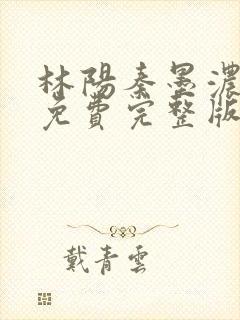 林陽秦墨濃
免費完整版
戴青雲